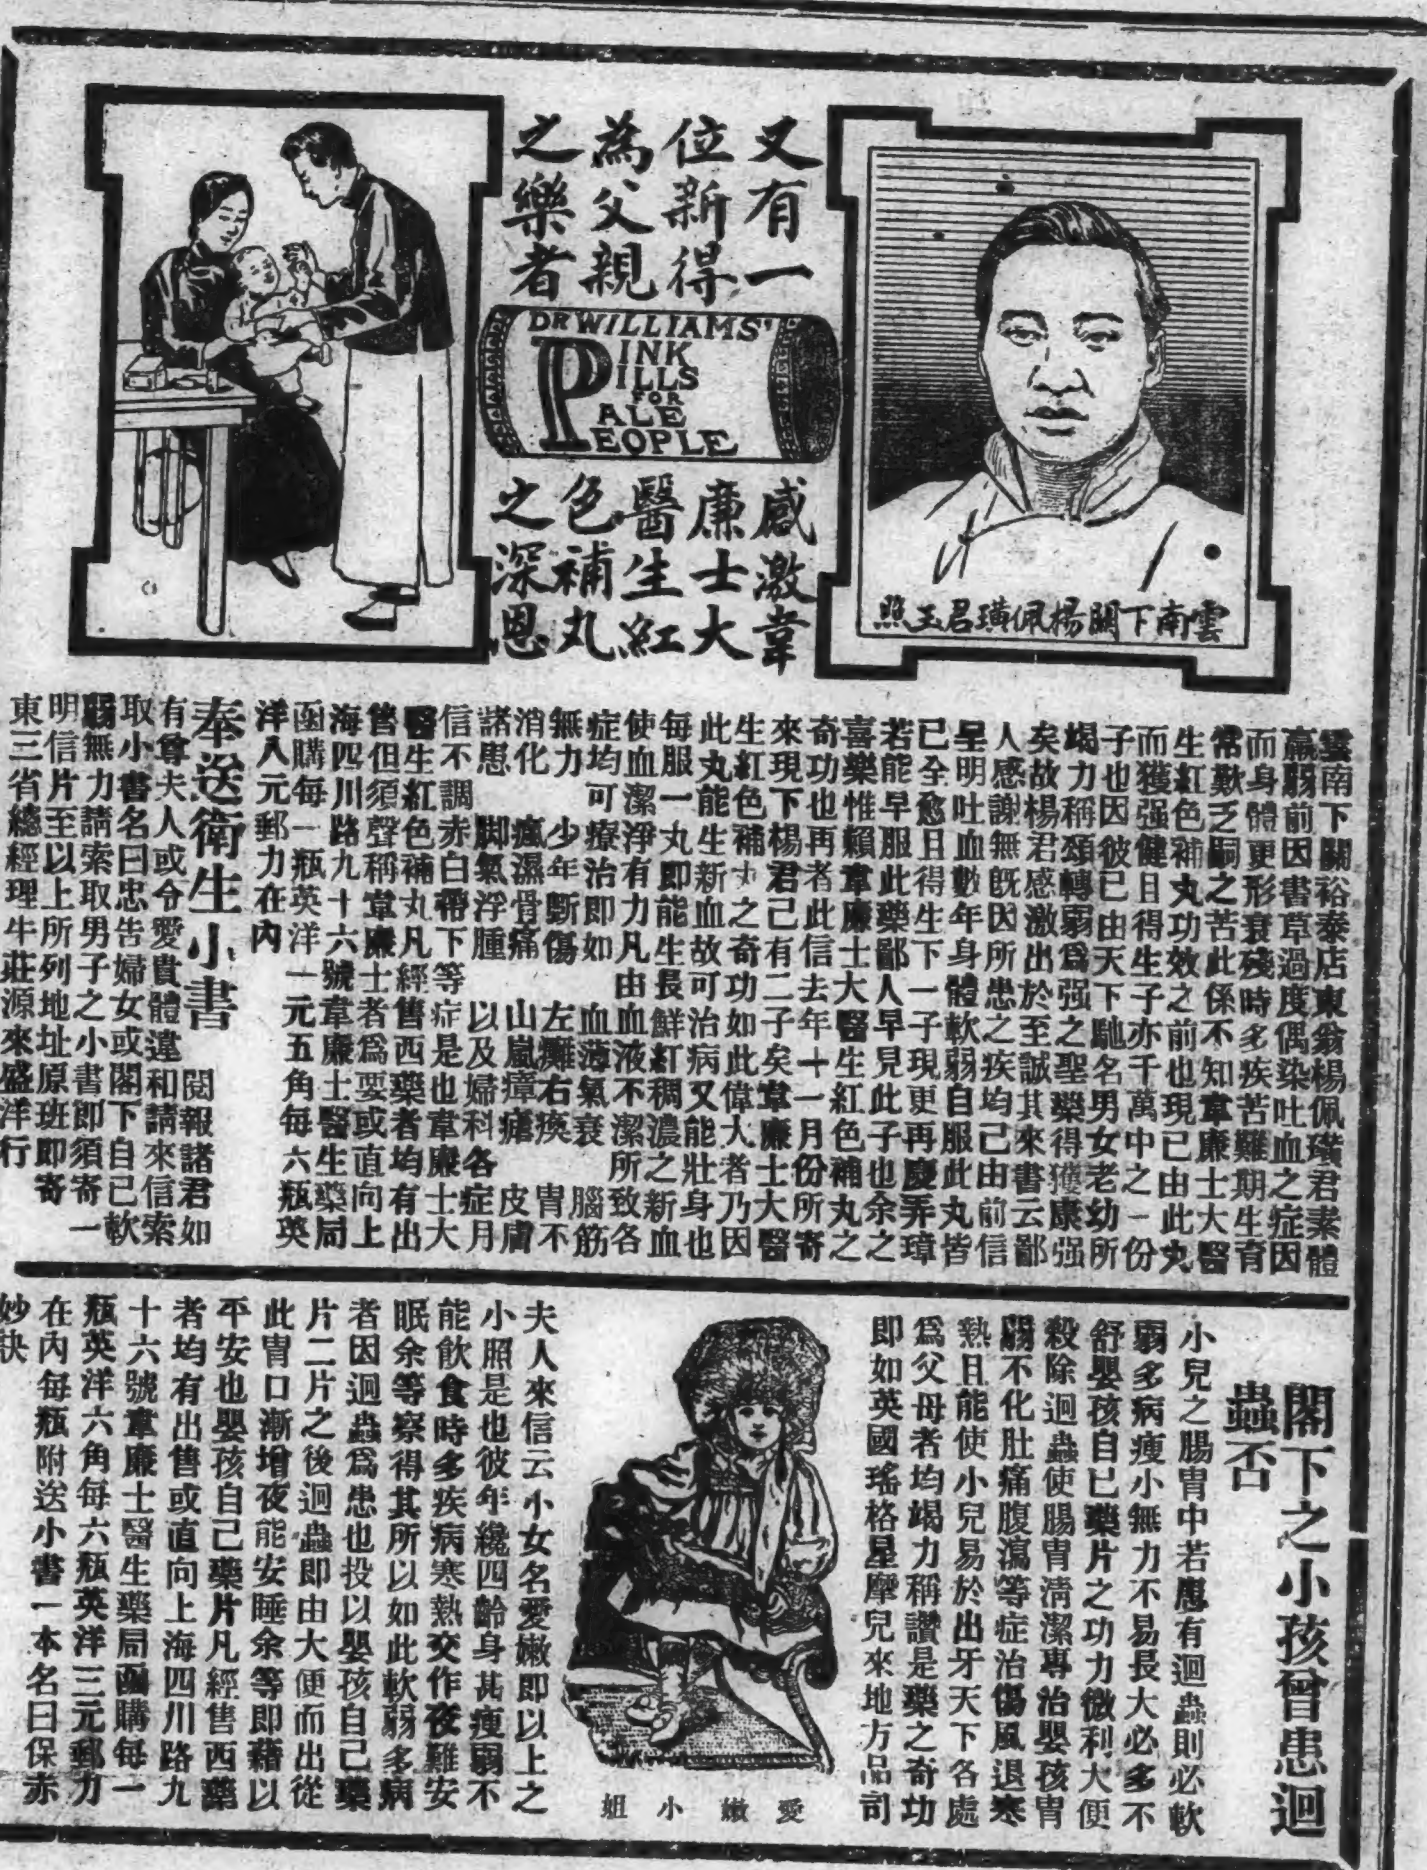 又有一
位新得
為父親
之樂者
DR WILLIAMS'
PINK
PILLS
FOR
PALE
PEOPLE
感激韋
廉士大
醫生紅
色補丸
之深恩
雲南下關楊佩璜君玉照
雲南下關裕泰店東翁楊佩璜君素體
羸弱前因書草過度偶染吐血之症因
而身體更形衰殘時多疾苦難期生育
常歎乏嗣之苦此係不知韋廉士大醫
生紅色補丸功效之前也現已由此丸
而獲强健且得生子亦千萬中之一份
子也因彼已由天下馳名男女老幼所
竭力稱頌轉弱爲强之聖藥得獲康强
矣故楊君感激出於至誠其來書云鄙
人感謝無旣因所患之疾均已由前信
呈明吐血數年身體軟弱自服此丸皆
已全愈且得生下一子現更再慶弄璋
若能早服此藥鄙人早見此子也余之
喜樂惟賴韋廉士大醫生紅色補丸之
奇功也再者此信去年十一月份所寄
來現下楊君已有二子矣韋廉士大醫
生紅色補丸之奇功如此偉大者乃因
此丸能生新血故可治病又能壯身也
每服一丸即能生長鮮紅稠濃之新血
使血潔淨有力凡由血液不潔所致各
症均可療治即如 血薄氣衰 腦筋
無力 少年斷傷 左癱右瘓 胃不
消化 瘋濕骨痛 山嵐瘴瘧 皮膚
諸患 脚氣浮腫 以及婦科各症月
信不調赤白帶下等症是也韋廉士大
醫生紅色補丸凡經售西藥者均有出
售但須聲稱韋廉士者爲要或直向上
海四川路九十六號韋廉士醫生藥局
函購每一瓶英洋一元五角每六瓶英
洋八元郵力在內
奉送衛生小書 閱報諸君如
有尊夫人或令愛貴體違和請來信索
取小書名曰忠告婦女或閣下自己軟
弱無力請索取男子之小書即須寄一
明信片至以上所列地址原班即寄
東三省總經理牛莊源來盛洋行
閣下之小孩曾患迴
蟲否
小兒之腸胃中若患有迴蟲則必軟
弱多病瘦小無力不易長大必多不
舒嬰孩自已藥片之功力微利大便
殺除迴蟲使腸胃清潔專治嬰孩胃
弱不化肚痛腹瀉等症治傷風退寒
熱且能使小兒易於出牙天下各處
爲父母者均竭力稱讚是藥之奇功
即如英國瑤格星摩兒來地方品司
愛嫩小姐
夫人來信云小女名愛嫩即以上之
小照是也彼年纔四齡身甚瘦弱不
能飲食時多疾病寒熱交作夜難安
眠余等察得其所以如此軟弱多病
者因迴蟲爲患也投以嬰孩自己藥
片二片之後迴蟲即由大便而出從
此胃口漸增夜能安睡余等即藉以
平安也嬰孩自己藥片凡經售西藥
者均有出售或直向上海四川路九
十六號韋廉士醫生藥局函購每一
瓶英洋六角每六瓶英洋三元郵力
在內每瓶附送小書一本名曰保赤
妙訣